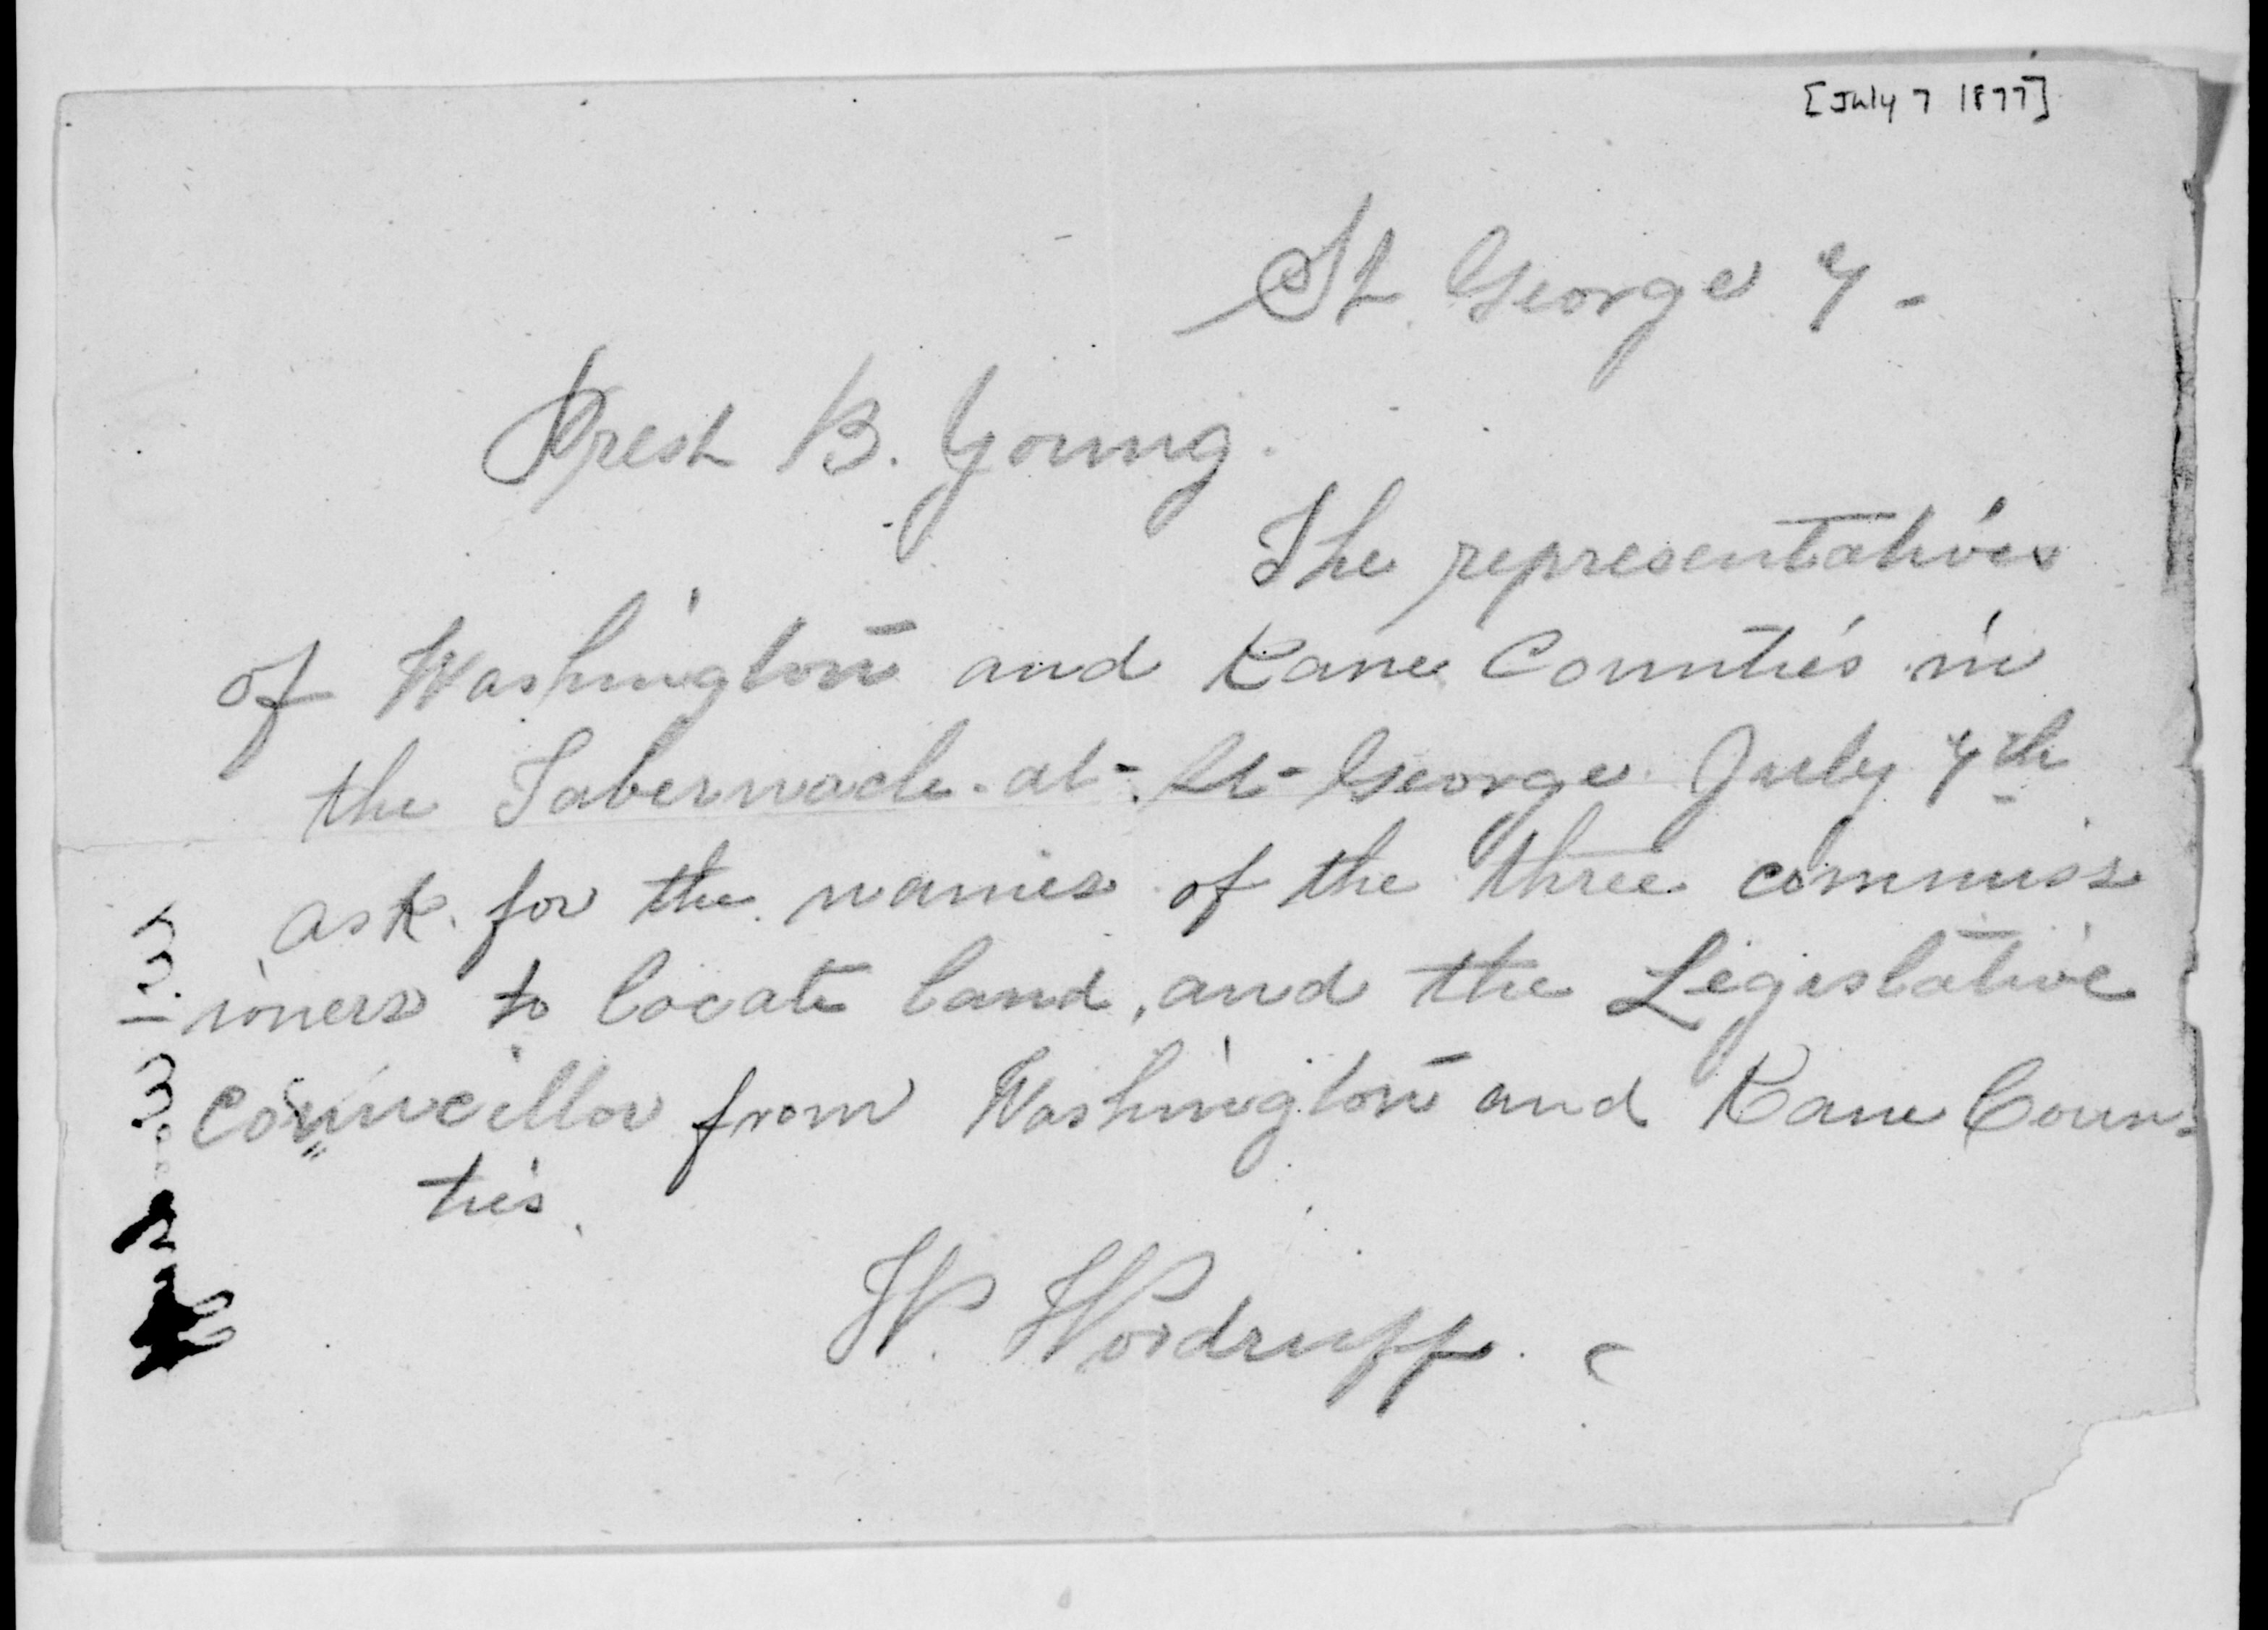 [July 7 1877]
St. George 7-
Prest B. Young.
The representatives
of Washington and Kane Counties in
the Tabernacle at St George July 7th
ask for the names of the three commiss
ioners to locate land, and the Legislative
Councillor from Washington and Kane Coun-
ties.
W. Woodruff.